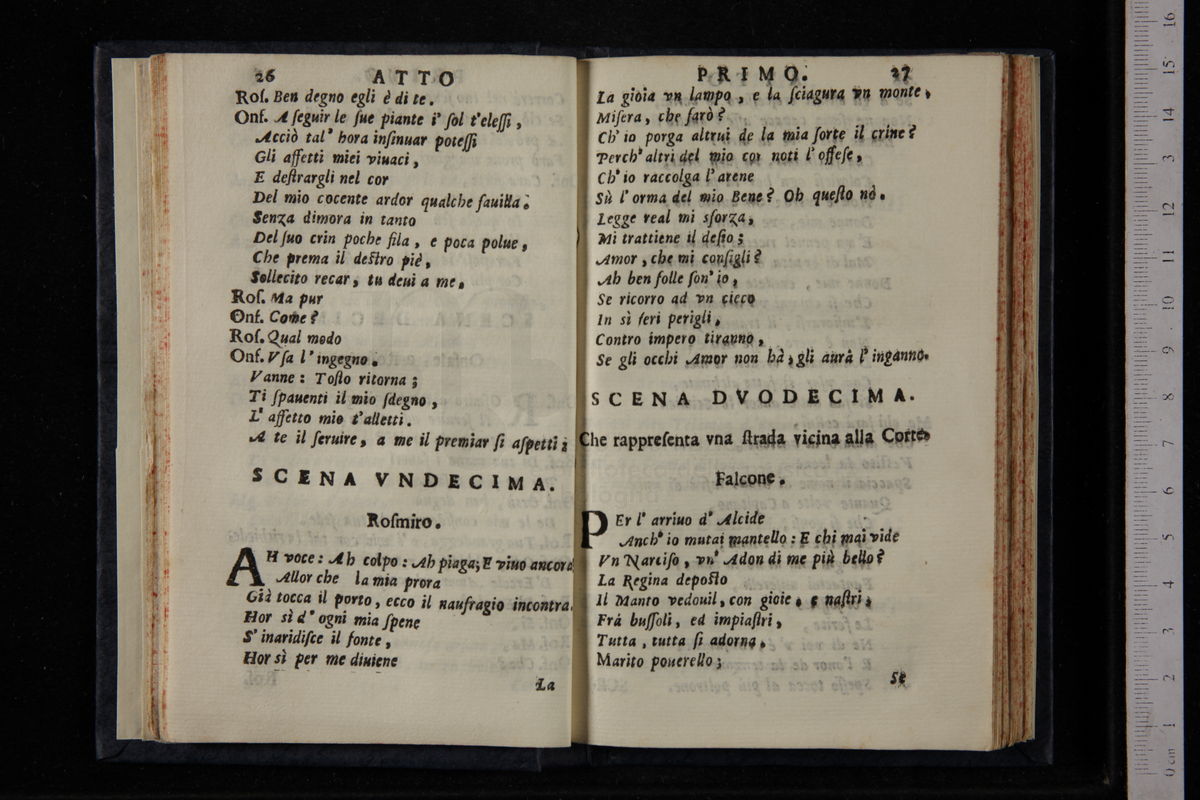 26 ATTO
Roſ. Ben degno egli è di te.
Onf. A ſeguir le ſue piante i' ſol t'eleſſi,
Acciò tal' hora inſinuar poteſſi
Gli affetti miei viuaci,
E deſtrargli nel cor
Del mio cocente ardor qualche fauilla;
Senza dimora in tanto
Del ſuo crin poche fila, e poca polue,
Che prema il deſtro piè,
Sollecito recar, tu deui a me.
Roſ. Ma pur
Onf. Come?
Roſ. Qual modo
Onf. Vſa l'ingegno.
Vanne: Toſto ritorna;
Ti ſpauenti il mio ſdegno,
L' affetto mio t'alletti.
A te il ſeruire, a me il premiar ſi aſpetti;
SCENA VNDECIMA.
Roſmiro.
AH voce: Ah colpo: Ah piaga; E viuo ancora
Allor che la mia prora
Già tocca il porto, ecco il naufragio incontra.
Hor sì d' ogni mia ſpene
S' inaridiſce il fonte,
Hor sì per me diuiene
La
PRIMO. 27
La gioia vn lampo, e la ſciagura vn monte,
Miſera, che farò?
Ch' io porga altrui de la mia ſorte il crine?
Perch' altri del mio cor noti l' offeſe,
Ch' io raccolga l' arene
Sù l' orma del mio Bene? Oh queſto nò.
Legge real mi sforza,
Mi trattiene il deſio;
Amor, che mi conſigli?
Ah ben folle ſon' io,
Se ricorro ad vn cieco
In sì feri perigli,
Contro impero tiranno,
Se gli occhi Amor non hà, gli aurà l' inganno.
SCENA DVODECIMA.
Che rappreſenta vna ſtrada vicina alla Corte.
Falcone.
PEr l' arriuo d' Alcide
Anch' io mutai mantello: E chi mai vide
Vn Narciſo, vn' Adon di me più bello?
La Regina depoſto
Il Manto vedouil, con gioie, e naſtri,
Frà buſſoli, ed impiaſtri,
Tutta, tutta ſi adorna.
Marito pouerello;
Se